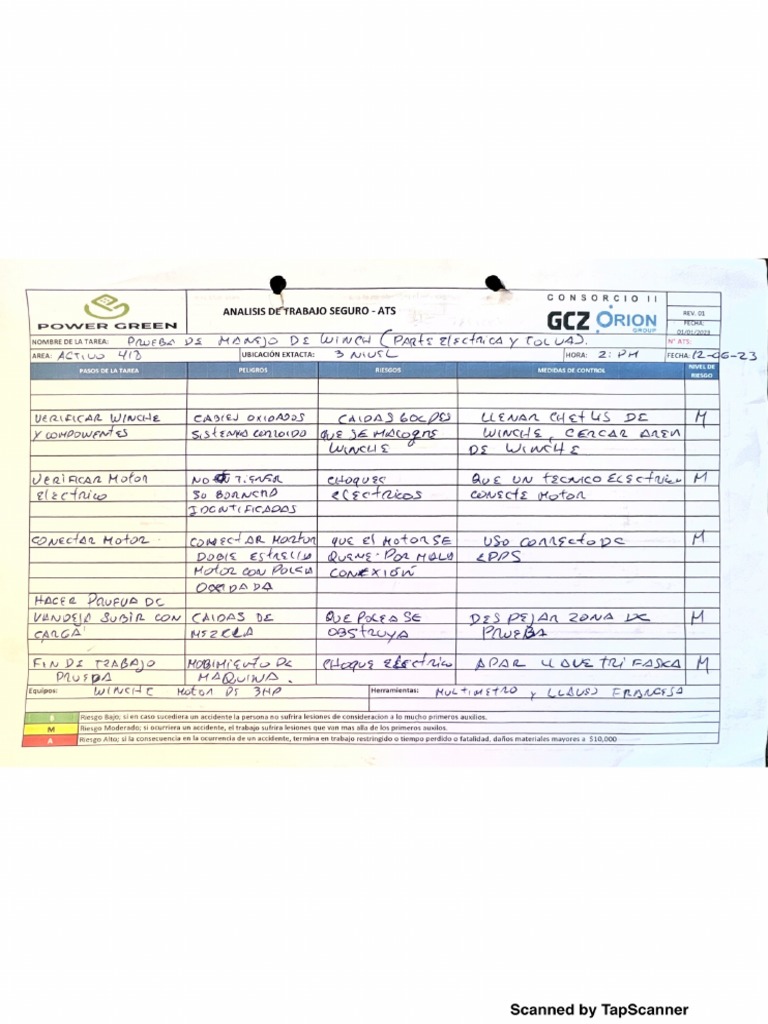 CONSORCIO II
ANALISIS DE TRABAJO SEGURO - ATS
GCZ ORION
GROUP
POWER GREEN
REV. 01
FECHA:
01/01/2023
NOMBRE DE LA TAREA: PRUEBA DE MANEJO DE WINCH (PARTE ELECTRICA Y TOLVAS).
N° ATS:
AREA: ACTIVO 413 UBICACIÓN EXTACTA: 3 NIVEL HORA: 2: PM FECHA: 12-06-23
PASOS DE LA TAREA PELIGROS RIESGOS MEDIDAS DE CONTROL NIVEL DE RIESGO
VERIFICAR WINCHE CABLES OXIDADOS CAIDAS GOLPES LLENAR DE M
Y COMPONENTES SISTEMAS QUE SE WINCHE, CERCAR AREA
WINCHE DE WINCHE
VERIFICAR MOTOR NO TIENEN CHOQUES QUE UN TECNICO ELECTRICO M
ELECTRICO SU BORNERA ELECTRICOS CONECTE MOTOR
IDENTIFICADAS
CONECTAR MOTOR CONECTAR MOTOR QUE EL MOTOR SE USO CORRECTO DE M
DOBLE ESTRELLA QUEME POR MALA EPPS
MOTOR CON POLEA CONEXIÓN
OXIDADA
HACER PRUEVA DE
VANDEJA SUBIR CON CAIDAS DE QUE POLEA SE DESPEJAR ZONA DE M
CARGA MEZCLA OBSTRUYA PRUEBA
FIN DE TRABAJO MOBIMIENTO DE CHOQUE ELECTRICO APAR LLAVE TRIFASICA M
PRUEBA MAQUINA.
Equipos: WINCHE MOTOR DE 3HP Herramientas: MULTIMETRO Y LLAVES FRANCESA
B Riesgo Bajo; si en caso sucediera un accidente la persona no sufrira lesiones de consideracion a lo mucho primeros auxilios.
M Riesgo Moderado; si ocurriera un accidente, el trabajo sufrira lesiones que van mas alla de los primeros auxilos.
A Riesgo Alto; si la consecuencia en la ocurrencia de un accidente, termina en trabajo restringido o tiempo perdido o fatalidad, daños materiales mayores a $10,000
Scanned by TapScanner